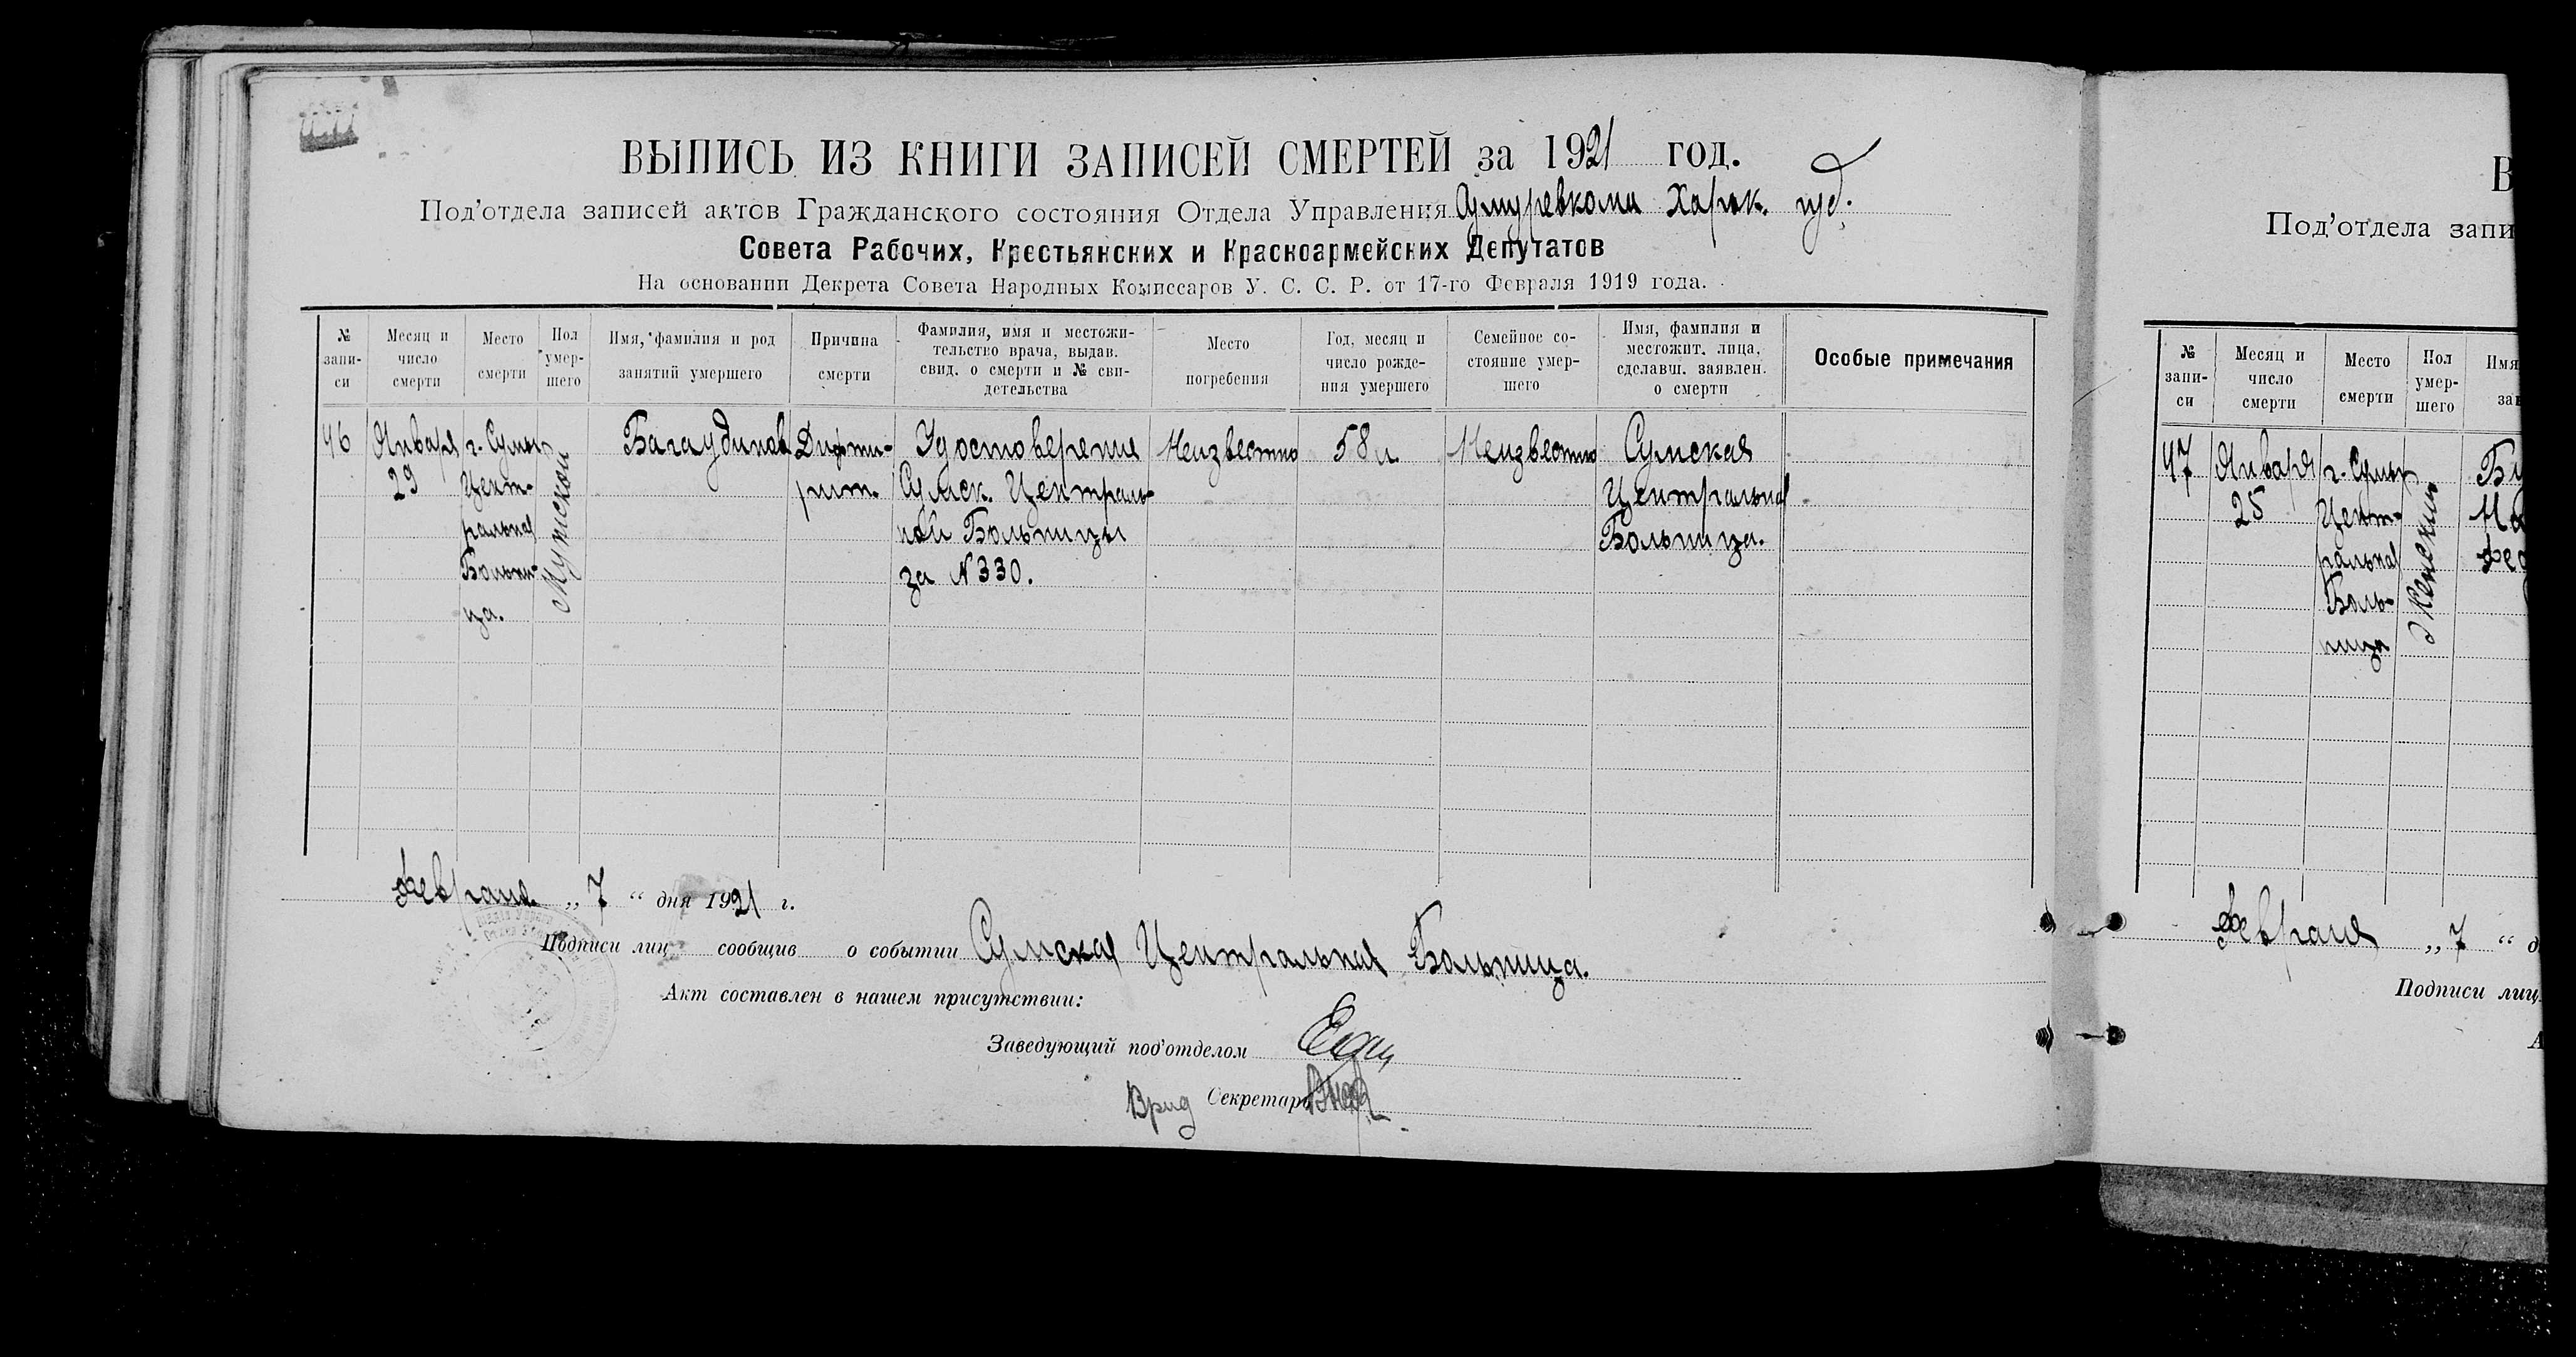 ВЫПИСЬ ИЗ КНИГИ ЗАПИСЕЙ СМЕРТЕЙ за 1921 год.
Под'отдела записей актов Гражданского состояния Отдела Управления Сумуревкома Харьк. губ.
Совета Рабочих, Крестьянских и Красноармейских Депутатов
На основании Декрета Совета Народных Комиссаров У. С. С. Р. от 17-го Февраля 1919 года.
№ запи-
си
Месяц и
число
смерти
Место
смерти
Пол
умер-
шего
Имя, фамилия и род
занятий умершего
Причина
смерти
Фамилия, имя и местожи-
тельство врача, выдав.
свид. о смерти и № сви-
детельства
Место
погребения
Год, месяц и
число рожде-
ния умершего
Семейное со-
стояние умер-
шего
Имя, фамилия и
местожит. лица,
сделавш. заявлен.
о смерти
Особые примечания
46
Января
29
г. Сумы
Цент-
ральная
Больни-
ца.
Мужской
Багаудинов
Дифте-
рит.
Удостоверение
Сумск. Централь-
ной Больницы
за № 330.
Неизвестно
58 л.
Неизвестно
Сумская
Центральная
Больница.
Февраля „ 7 “ дня 1921 г.
Подписи лиц сообщив о событии Сумская Центральная Больница.
Акт составлен в нашем присутствии:
Заведующий под'отделом
Врид Секретарь
В
Под'отдела запи
№
запи-
си
Месяц и
число
смерти
Место
смерти
Пол
умер-
шего
Имя
за
47
Января
25
г. Сумы
Цент-
ральная
Боль-
ница
Женский
Бу
На
Фед
Февраля „ 7 “ д
Подписи лиц
А